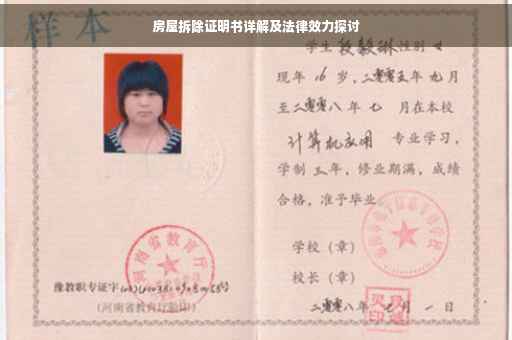 房屋拆除证明书详解及法律效力探讨
样本
学生段毅琳性别女
现年16岁,二零零五年九月
至二零零八年七 月在本校
计算机应用 专业学习,
学制三年,修业期满,成绩
合格,准予毕业。
学校(章)
校长(章)
二零零八年七月一日
河南省教育厅
豫教职专证字
(河南省教育厅验印)